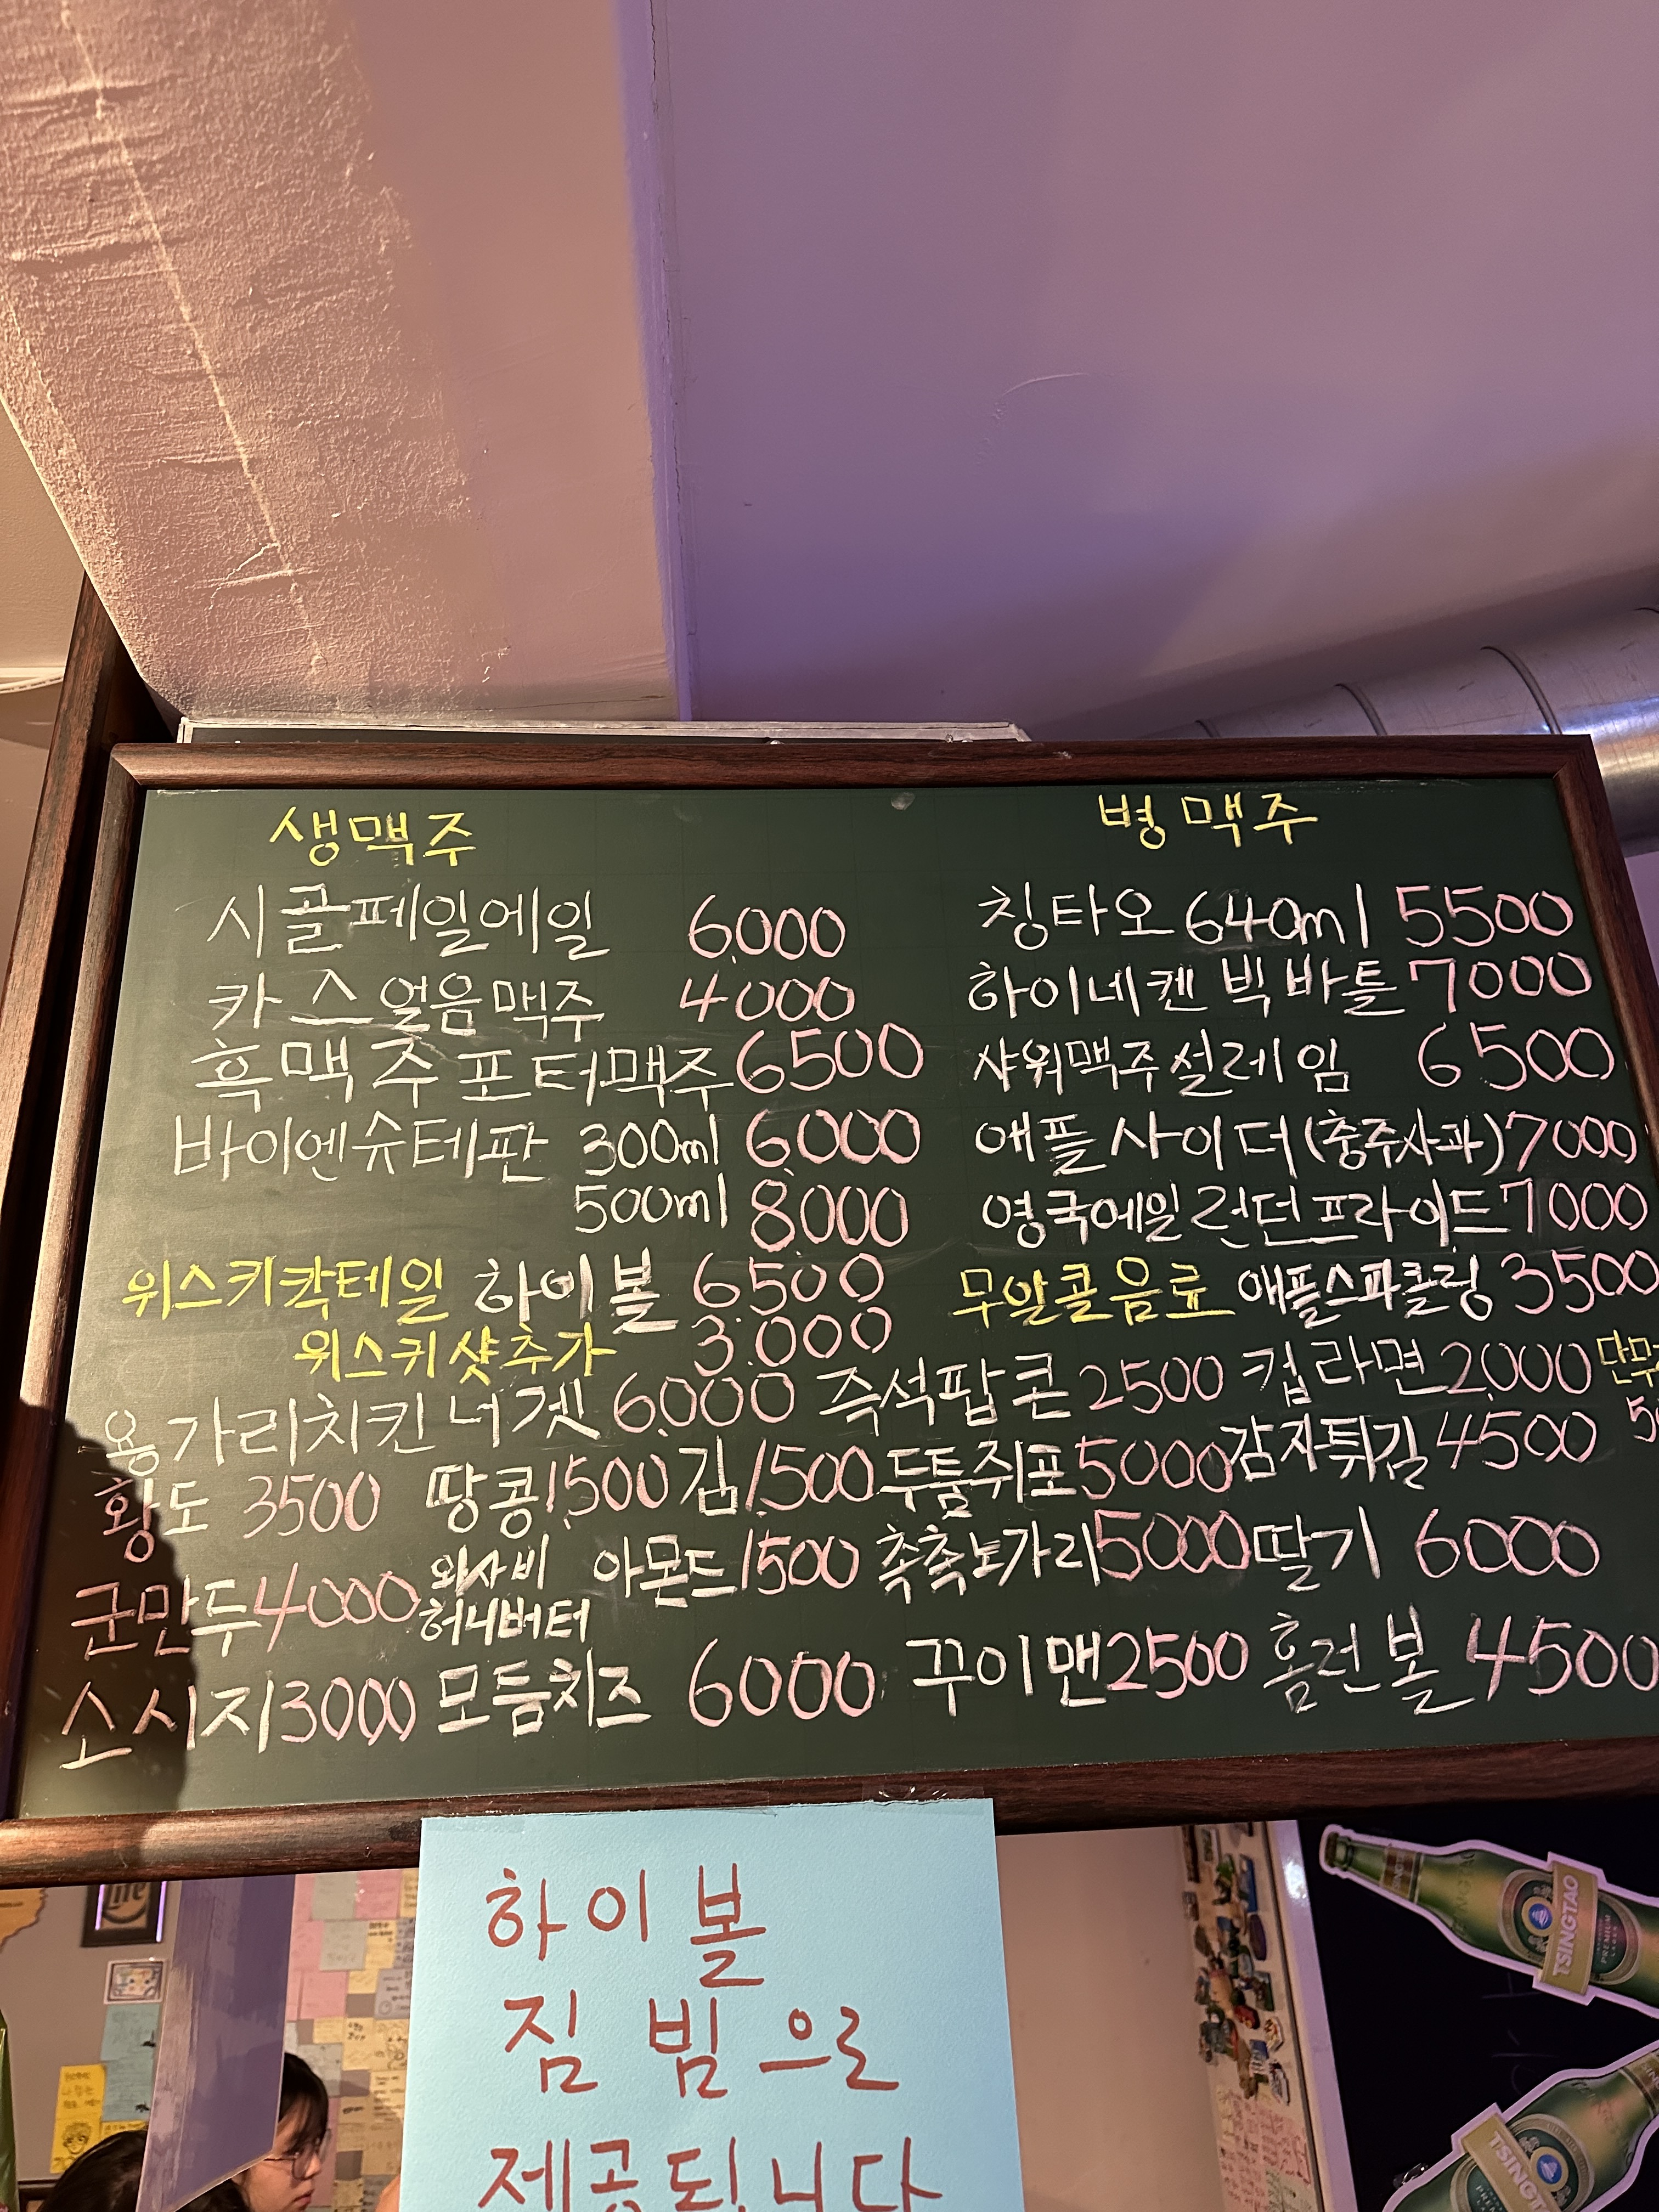 생맥주
시골페일에일 6,000
카스 얼음맥주 4000
흑맥주포터맥주 6500
바이엔슈테판 300ml 6,000
500ml 8,000
위스키칵테일 하이볼 6500
위스키샷추가 3,000
병맥주
칭타오 640ml 5500
하이네켄 빅 바틀 7000
샤워맥주 설레임 6500
애플사이더(충주사과) 7000
영국에일 런던프라이드 7000
무알콜음료 애플스파클링 3500
용가리치킨너겟 6,000 즉석팝콘 2500 컵라면 2,000
황도 3500 땅콩 1,500 김 1,500 두툼쥐포 5000 감자튀김 4500
군만두 4000 와사비 허니버터 아몬드 1500 촉촉노가리 5000 딸기 6000
소시지 3000 모듬치즈 6000 꾸이맨 2500 홈런볼 4500
하이볼
짐빔으로
제공됩니다
TSINGTAO
PREMIUM